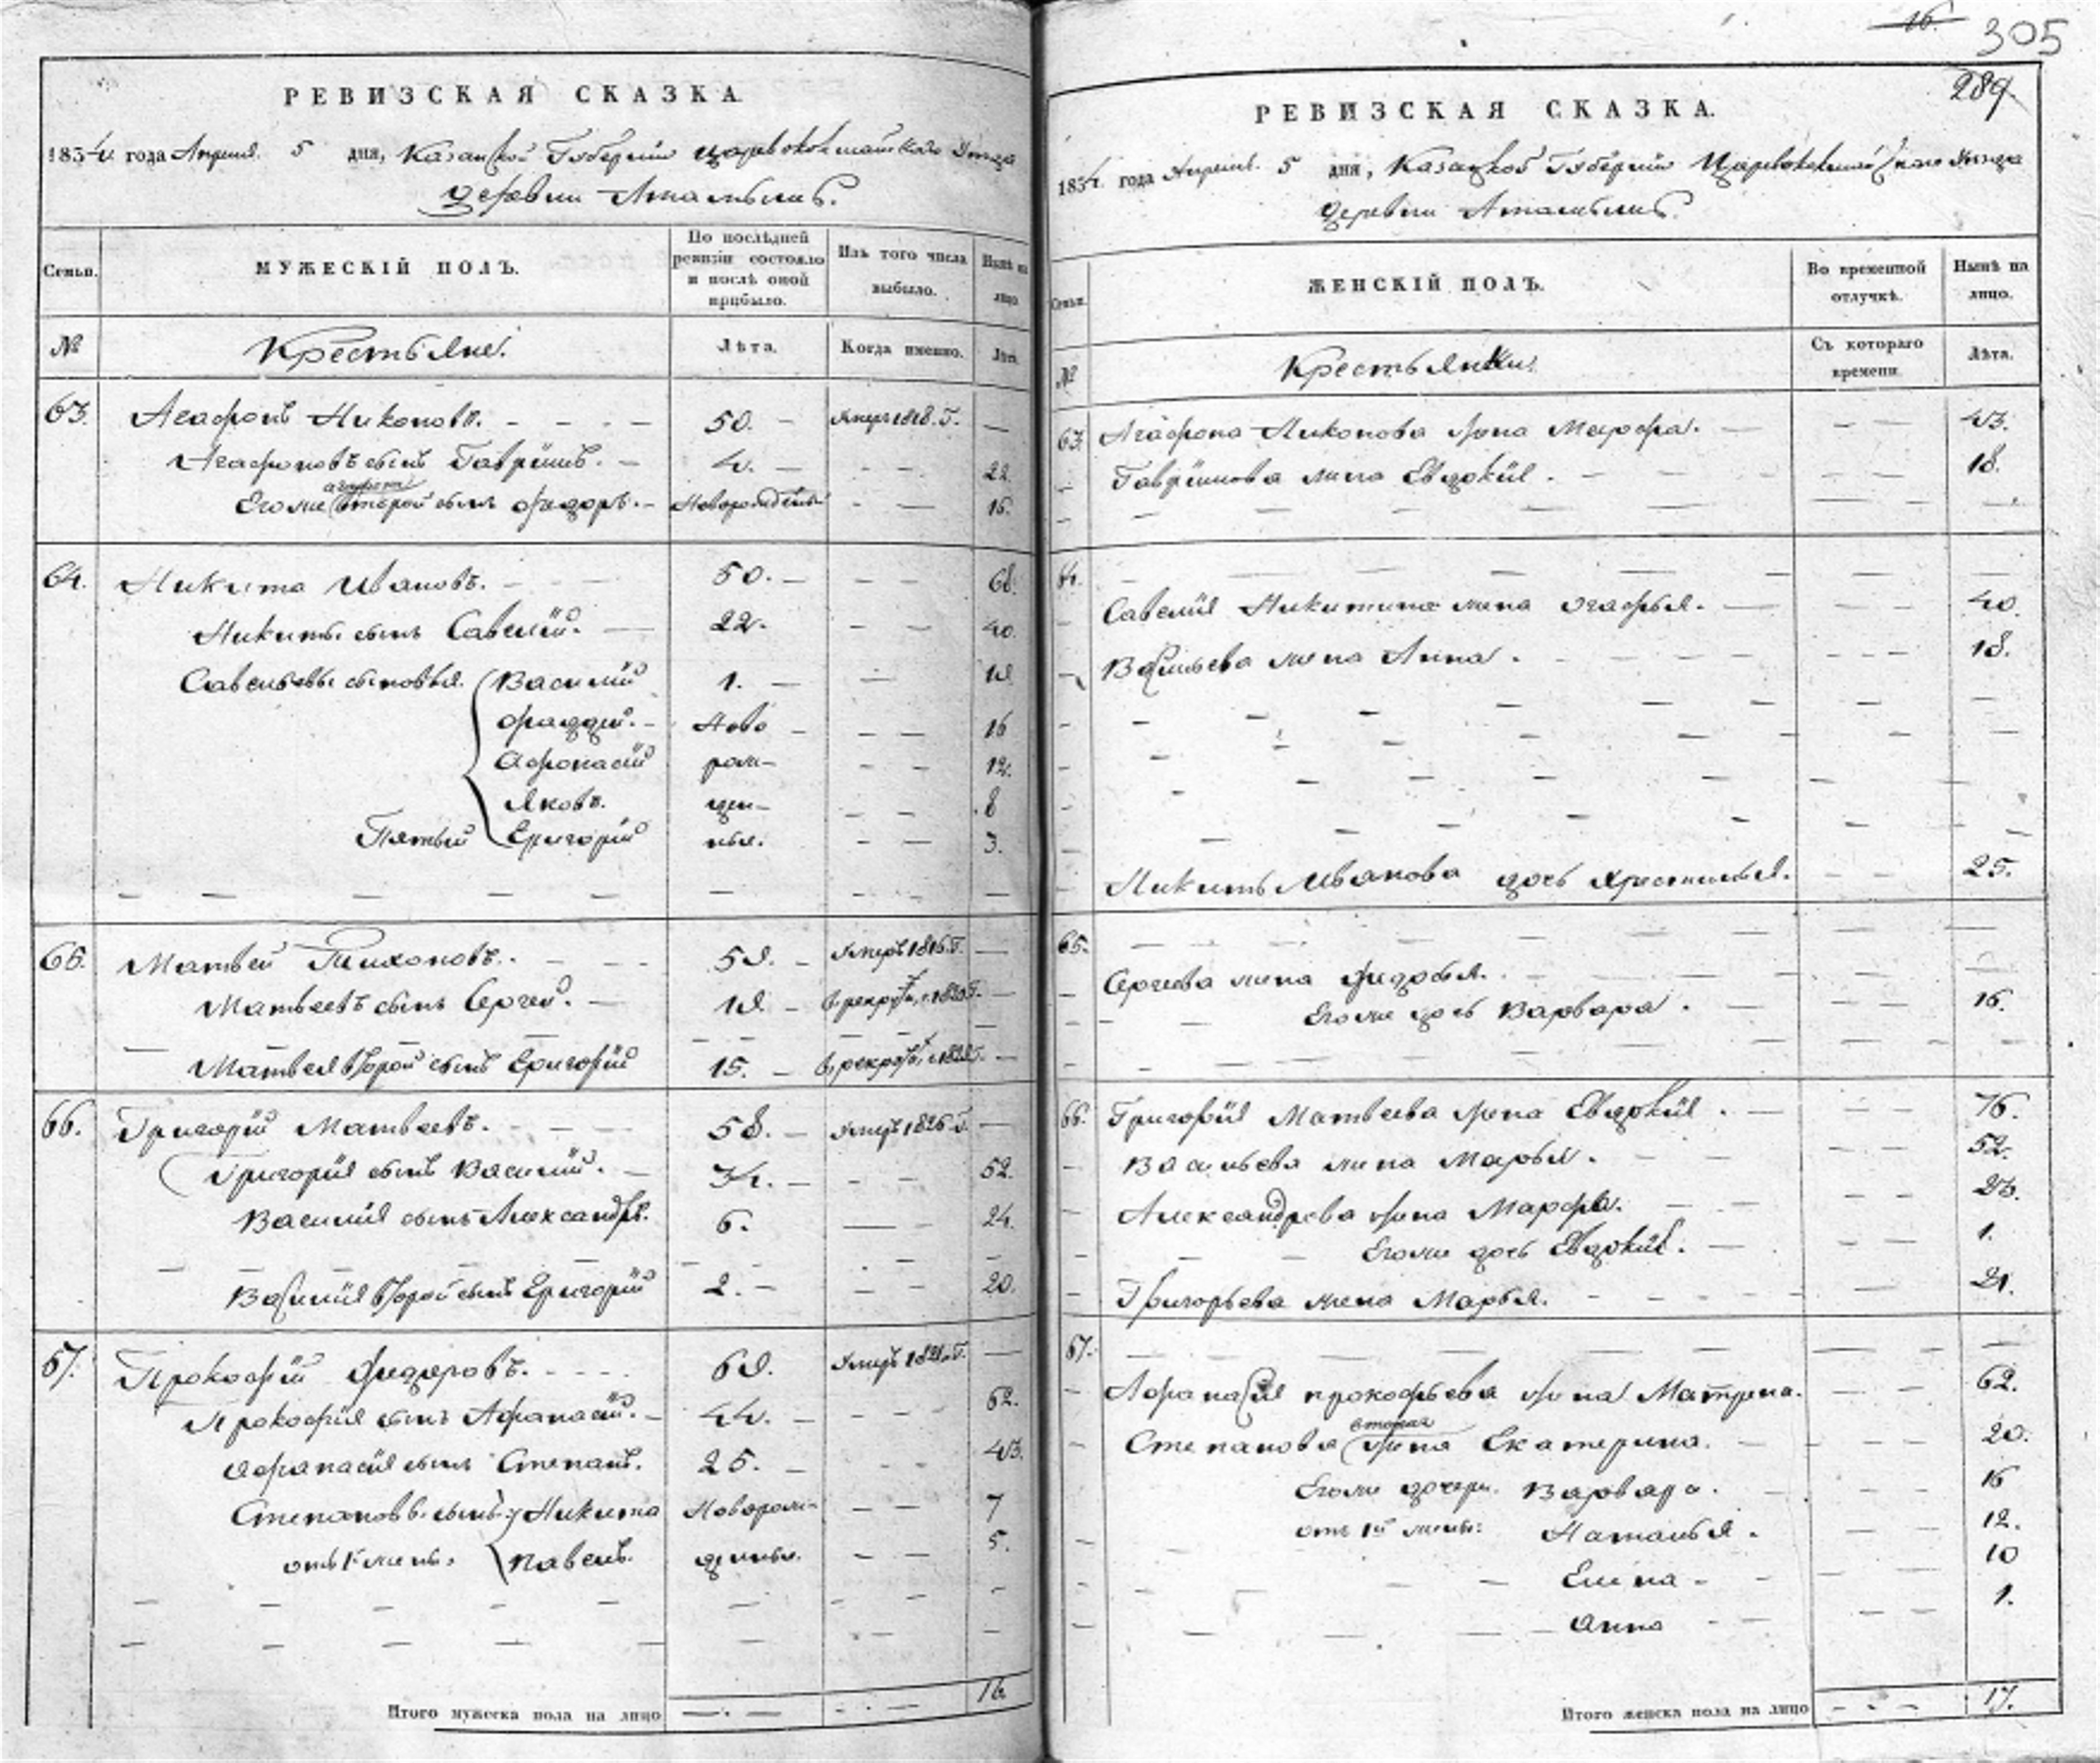 16.
305
289.
РЕВИЗСКАЯ СКАЗКА
1834 года Апреля 5 дня, Казанской Губернии Царевококшайского Уезда
деревни
Семьи.
МУЖЕСКІЙ ПОЛЪ.
По послѣдней ревизіи состояло и послѣ оной прибыло.
Изъ того числа выбыло.
Нынѣ на лицо.
№
Крестьяне.
Лѣта.
Когда именно.
Лѣта.
63. Агафонъ Никоновъ. 50. Умеръ 1818. Г.
Агафоновъ сынъ 4. 22.
Его же второй сынъ Федоръ. Новорожденъ 16.
64. Никита Ивановъ. 50. 68.
Никиты сынъ Савелій. 22. 40.
Савельевы сыновья. Василій 1. 19
Фаддей. Ново 16
Афонасій рож- 12.
Яковъ. ден- 8
Пятый Григорій ныя. 3.
65. Матвей Тихоновъ. 59. Умеръ 1816. Г.
Матвеевъ сынъ Сергей. 19. в рекруты
Матвея второй сынъ Григорій 15. в рекруты
66. Григорій Матвеевъ. 58. Умеръ 1826 Г.
Григорія сынъ Василій. 34. 52.
Василія сынъ Александръ. 6. 24.
Василія второй сынъ Григорій 2. 20.
67. Прокофій Федоровъ. 69. Умеръ
Прокофія сынъ Афанасій. 44. 62.
Афанасія сынъ Степанъ. 25. 43.
Никита Новорож- 7
отъ 1й жены. Павелъ. денныя. 5.
Итого мужеска пола на лицо 16
РЕВИЗСКАЯ СКАЗКА.
1834 года Апреля 5 дня, Казанской Губернии Царевококшайского Уезда
деревни
Семьи.
ЖЕНСКІЙ ПОЛЪ.
Во временной отлучкѣ.
Нынѣ на лицо.
№
Крестьянки.
Съ котораго времени
Лѣта.
63. Агафона Никонова жена Марфа. 43.
жена Евдокія. 18.
64.
Савелія Никитина жена Агафья. 40.
Васильева жена Анна. 18.
Никиты Иванова дочь 25.
65.
Сергеева жена Федосья.
Его же дочь Варвара. 16.
66. Григорія Матвеева жена Евдокія. 76.
Васильева жена Марья. 52.
Александрова жена Марфа. 23.
Его же дочь Евдокія. 1.
Григорьева жена Марья. 21.
67.
Афанасія Прокофьева жена Матрена. 62.
вторая
Степанова жена Екатерина. 20.
Его же дочери. Варвара. 16
отъ 1й жены: Наталья. 12.
Елена 10
Анна 1.
Итого женска пола на лицо 17.